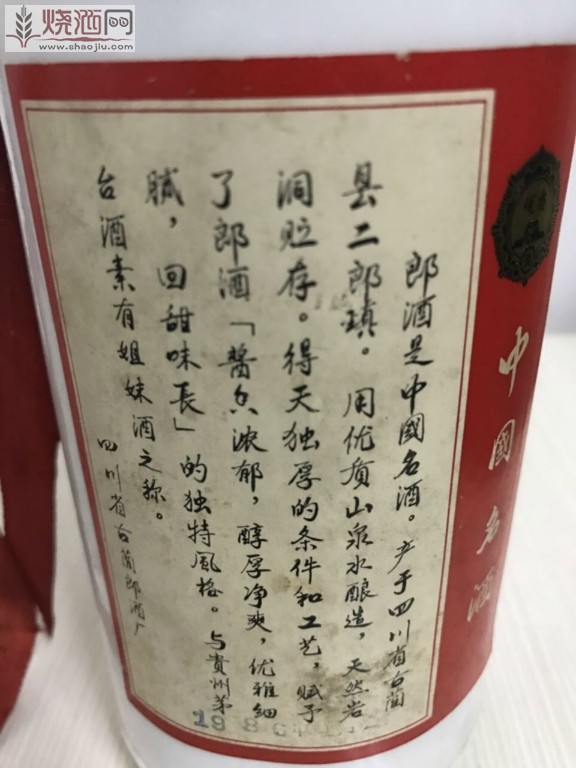 烧酒网
www.shaojiu.com
郎酒是中國名酒。产于四川省古蔺
县二郎瑱。用优质山泉水酿造，天然岩
洞贮存。得天独厚的条件和工艺，赋予
了郎酒「醬香浓郁，醇厚净爽，优雅细
腻，回甜味長」的独特風格。与貴州茅
台酒素有姐妹酒之称。
四川省古蔺郎酒厂
中國名酒